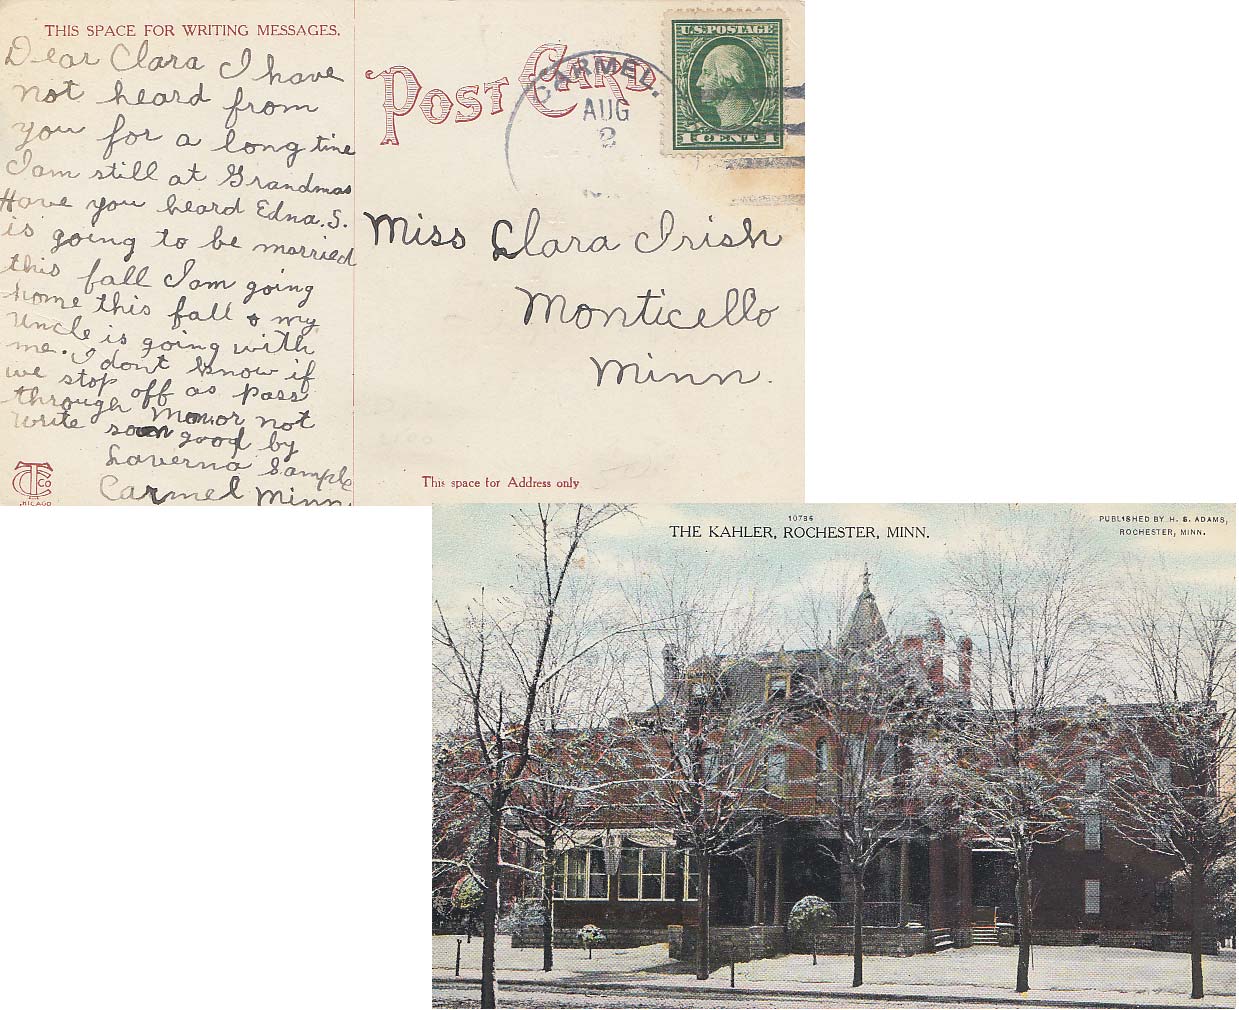 THIS SPACE FOR WRITING MESSAGES.
Dear Clara I have
not heard from
you for a long time
I am still at Grandmas
Have you heard Edna. S.
is going to be married
this fall I am going
home this fall & my
Uncle is going with
me. I dont know if
we stop off as Pass
through Mon. or not
Write soon good by
Laverna Sample
Carmel Minn.
TCCO
CHICAGO
POST CARD
CARMEL.
AUG
2
U.S. POSTAGE
1 CENT 1
Miss Clara Irish
Monticello
Minn.
This space for Address only
10786
THE KAHLER, ROCHESTER, MINN.
PUBLISHED BY H. S. ADAMS,
ROCHESTER, MINN.